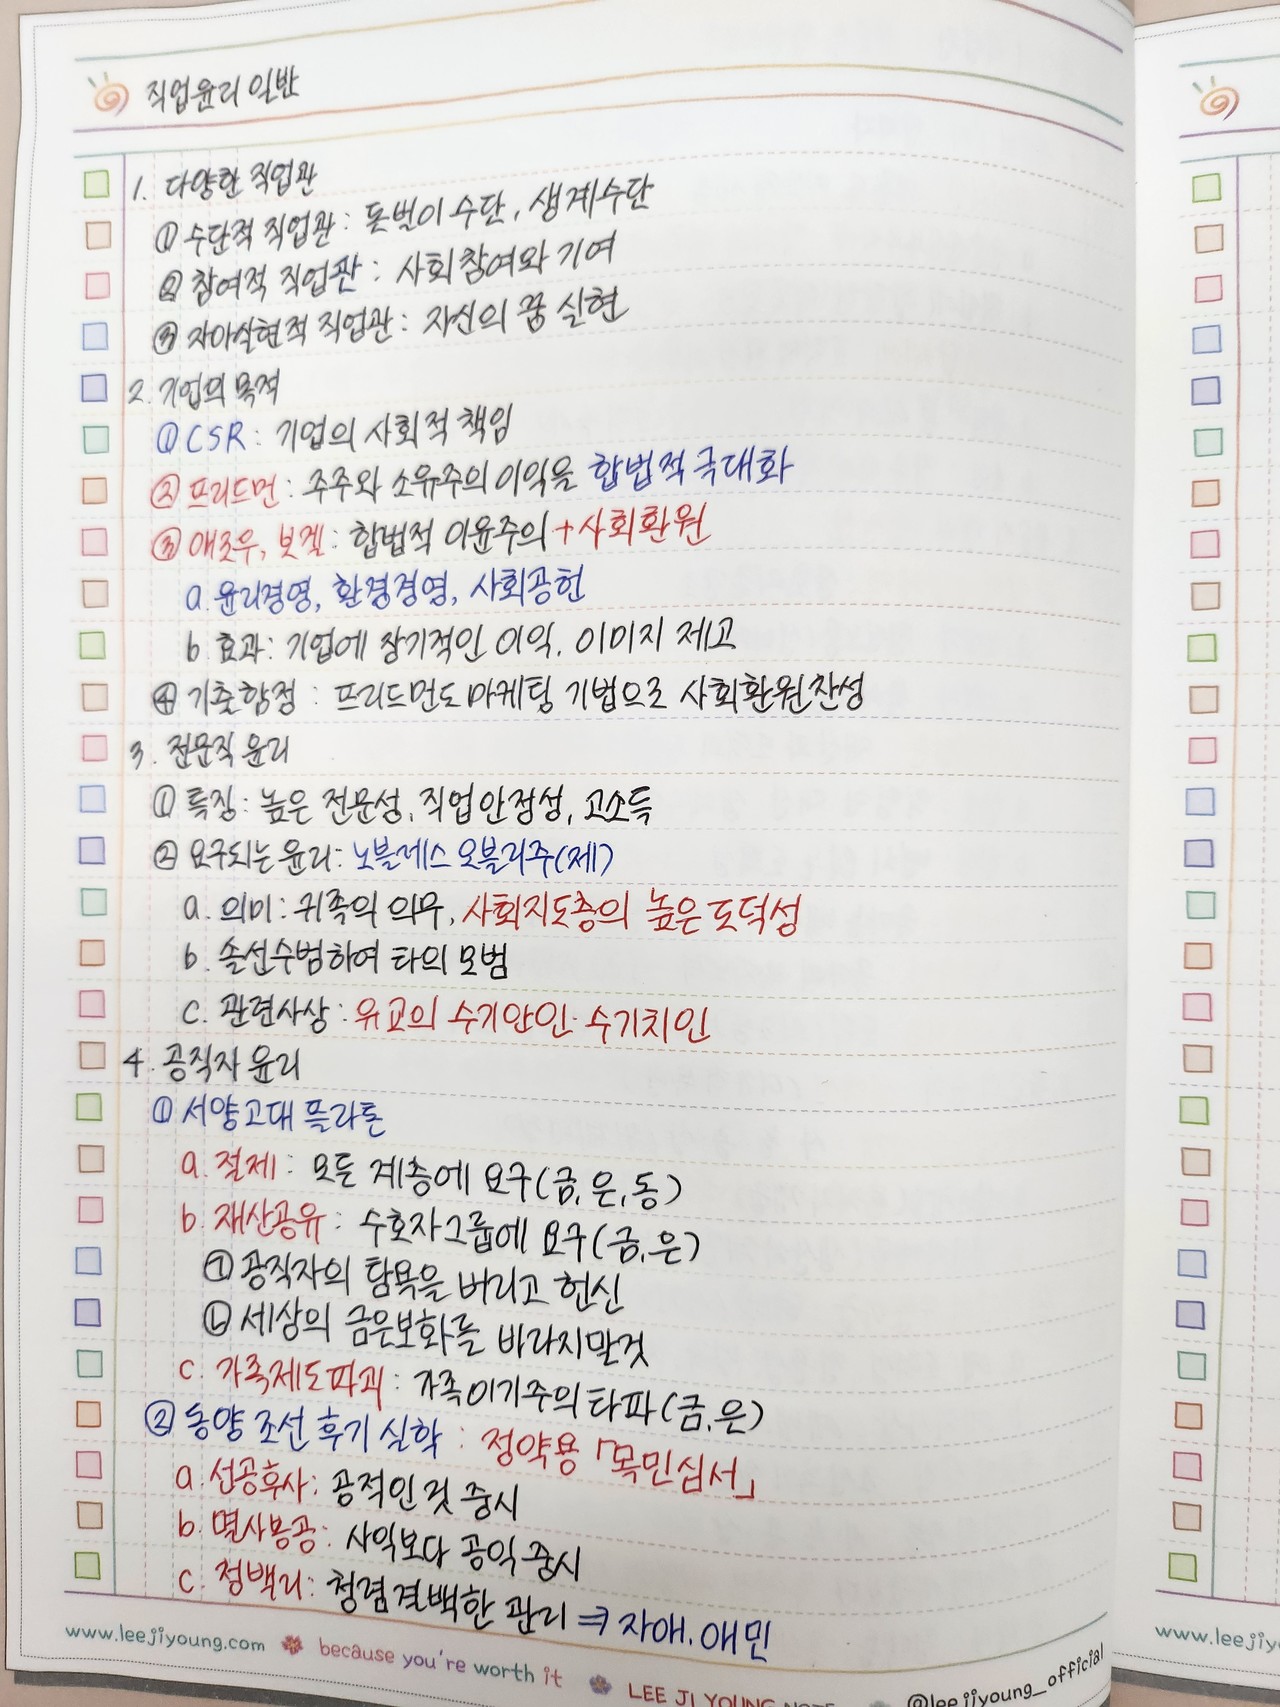 직업윤리 일반
1. 다양한 직업관
① 수단적 직업관 : 돈벌이 수단, 생계수단
② 참여적 직업관 : 사회참여와 기여
③ 자아실현적 직업관 : 자신의 꿈 실현
2. 기업의 목적
① CSR : 기업의 사회적 책임
② 프리드먼 : 주주와 소유주의 이익을 합법적 극대화
③ 애로우, 보겔 : 합법적 이윤주의 + 사회환원
a. 윤리경영, 환경경영, 사회공헌
b. 효과 : 기업에 장기적인 이익, 이미지 제고
④ 기출함정 : 프리드먼도 마케팅 기법으로 사회환원찬성
3. 전문직 윤리
① 특징 : 높은 전문성, 직업안정성, 고소득
② 요구되는 윤리 : 노블레스 오블리주(제)
a. 의미 : 귀족의 의무, 사회지도층의 높은 도덕성
b. 솔선수범하여 타의 모범
c. 관련사상 : 유교의 수기안인·수기치인
4. 공직자 윤리
① 서양고대 플라톤
a. 절제 : 모든 계층에 요구(금, 은, 동)
b. 재산공유 : 수호자그룹에 요구(금, 은)
㉠ 공직자의 탐욕을 버리고 헌신
㉡ 세상의 금은보화를 바라지말것
c. 가족제도파괴 : 가족이기주의타파(금, 은)
② 동양 조선 후기 실학 : 정약용 「목민심서」
a. 선공후사 : 공적인 것 중시
b. 멸사봉공 : 사익보다 공익 중시
c. 청백리 : 청렴결백한 관리 ⇒ 자애, 애민
www.leejiyoung.com because you're worth it LEE JI YOUNG NOTE @leejiyoung_official
www.leejiy